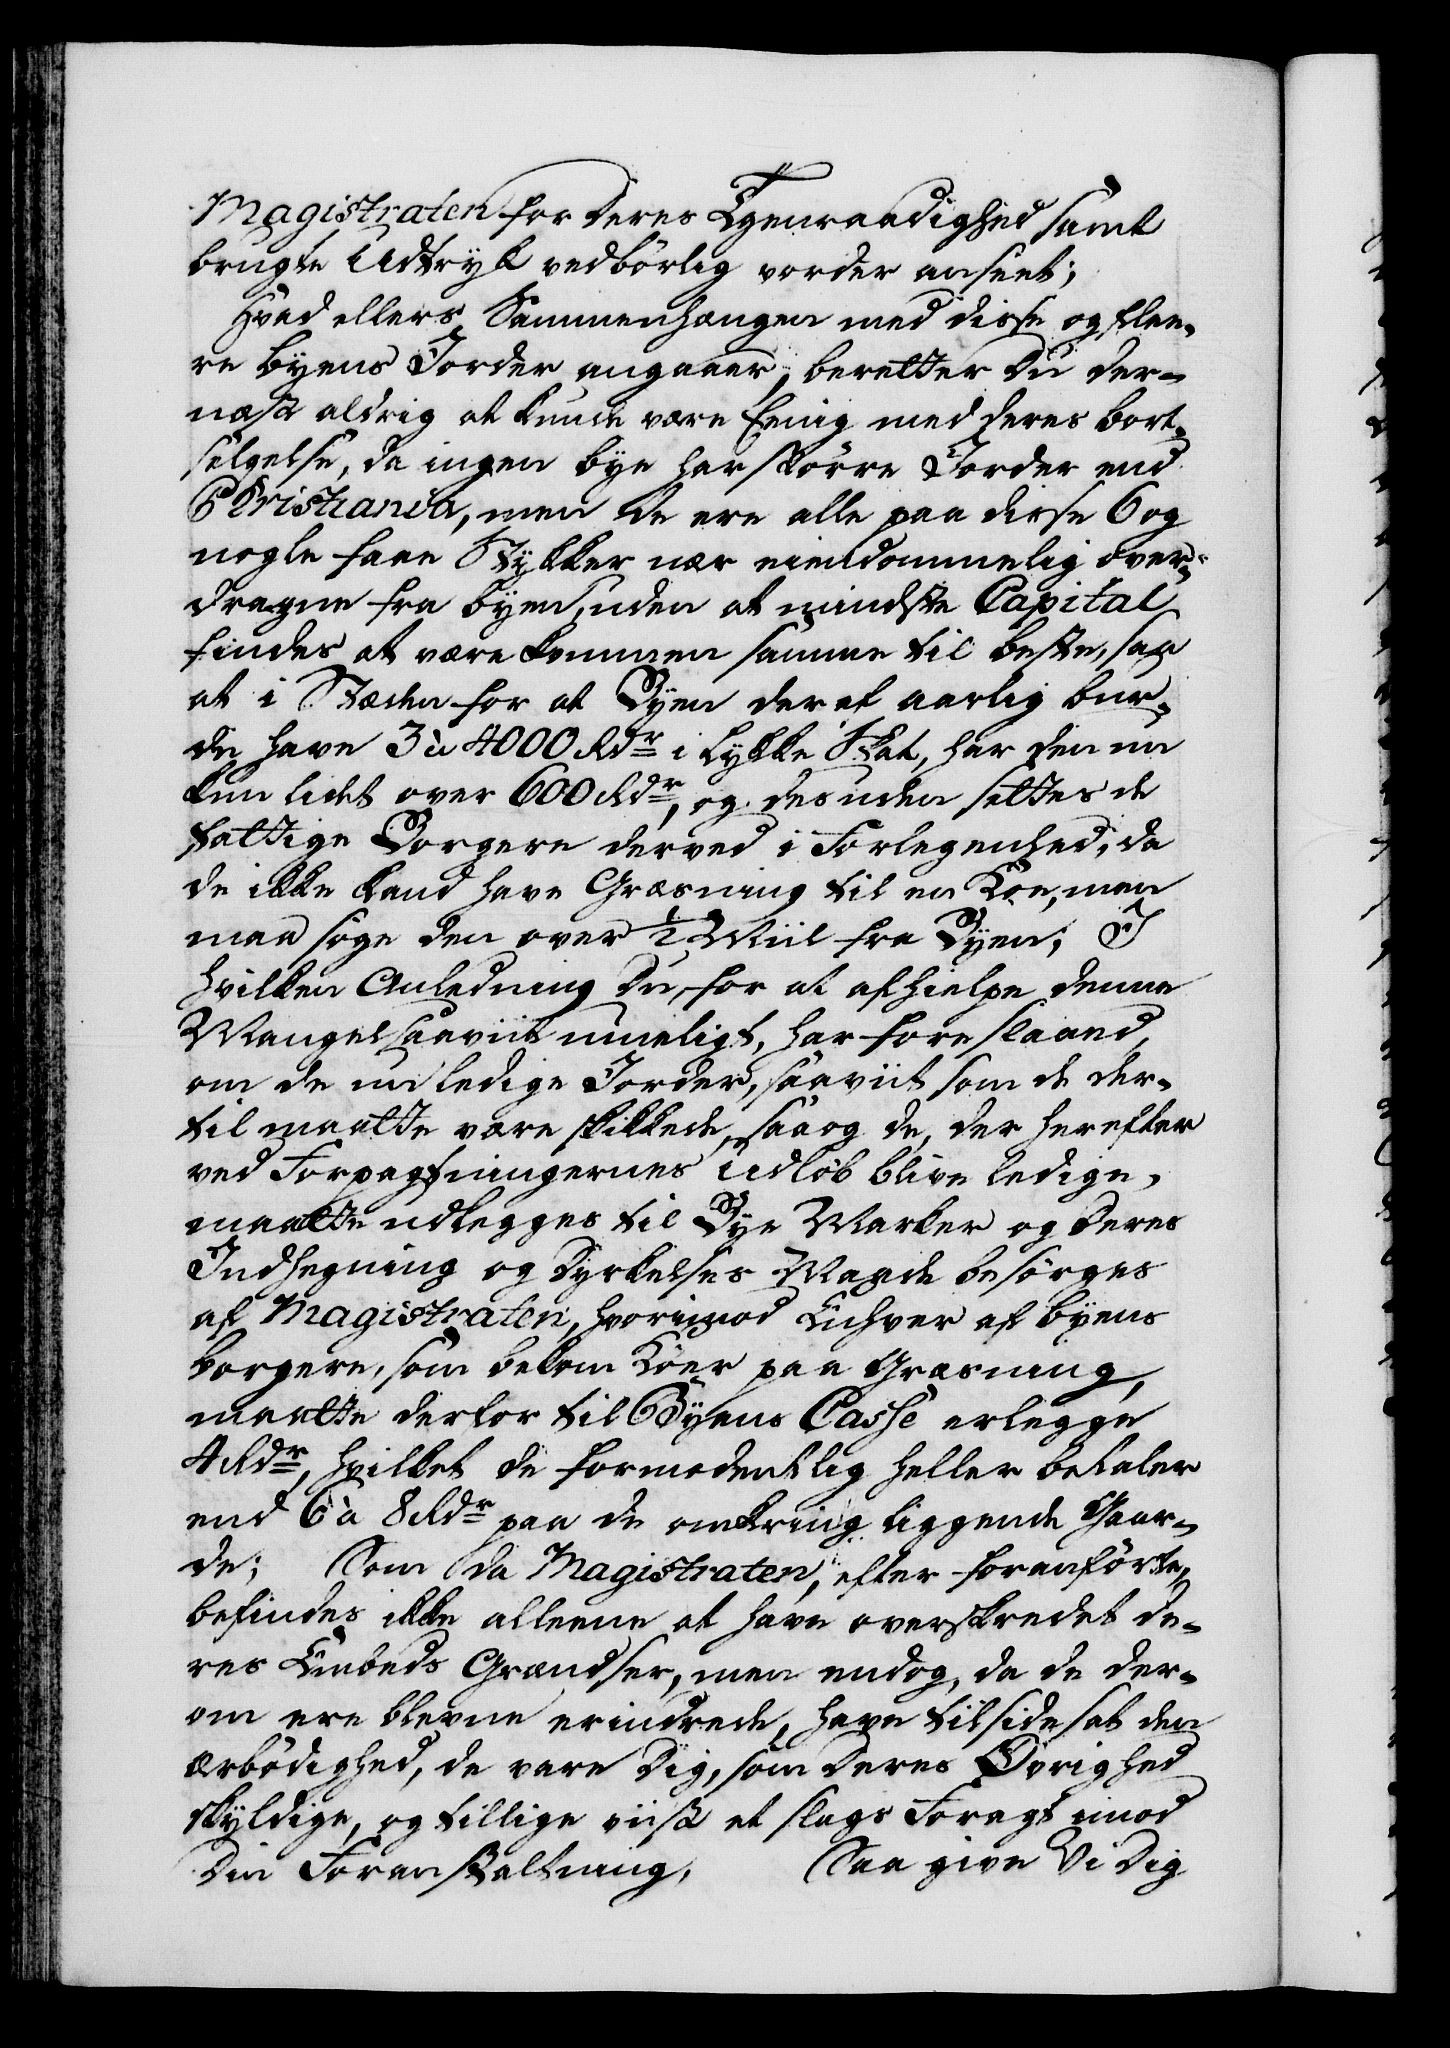 Magistraten for deres Egenraadighed samt
brugte Udtryk vedbörlig vorder anseet;
Hvad ellers Sammenhængen med disse og flee-
re byens Jorder angaaer, beretter Du der-
næst aldrig at kunde være Eenig med deres bort-
sælgelse, da ingen bye har större Jorder end
Christiania, men de ere alle paa disse 6 og
nogle faae Stykker nær eiendommelig over-
dragne fra byen, uden at mindste Capital
findes at være kommen samme til beste, saa
at i Stæden for at Byen deraf aarlig bur-
de have 3 à 4000 Rdr i Lykke Skat, har den nu
kun lidet over 600 Rdr, og desuden settes de
fattige Borgere derved i Forlegenhed, da
de ikke kand have Græsning til en Koe, men
maa söge den over ½ Miil fra Byen; I
hvilken Anledning Du, for at afhielpe denne
Mangel saaviit mueligt, har foreslaaed,
om de nu ledige Jorder, saaviit som de der-
til maatte være skikkede, saa og de, der herefter
ved Forpagtningernes Udlöb blive ledige,
maatte udlegges til Bye Marker og deres
Indhegning og Dyrkelses Maade besörges
af Magistraten, hvorimod Enhver af byens
borgere, som bekom Köer paa Græsning,
maatte derfor til Byens Casse erlegge
4 Rdr, hvilket de formodentlig heller betaler
end 6 à 8 Rdr paa de omkring liggende Gaar-
de; Som da Magistraten, efter foranförte,
befindes ikke alleene at have overskredet de-
res Embeds Grændser, men endog, da de der-
om ere blevne erindrede, have tilsidesat den
ærbödighed, de vare Dig, som deres Øvrighed
skyldige, og tillige viist et slags Foragt imod
Din Foranstaltning, Saa give Vi Dig